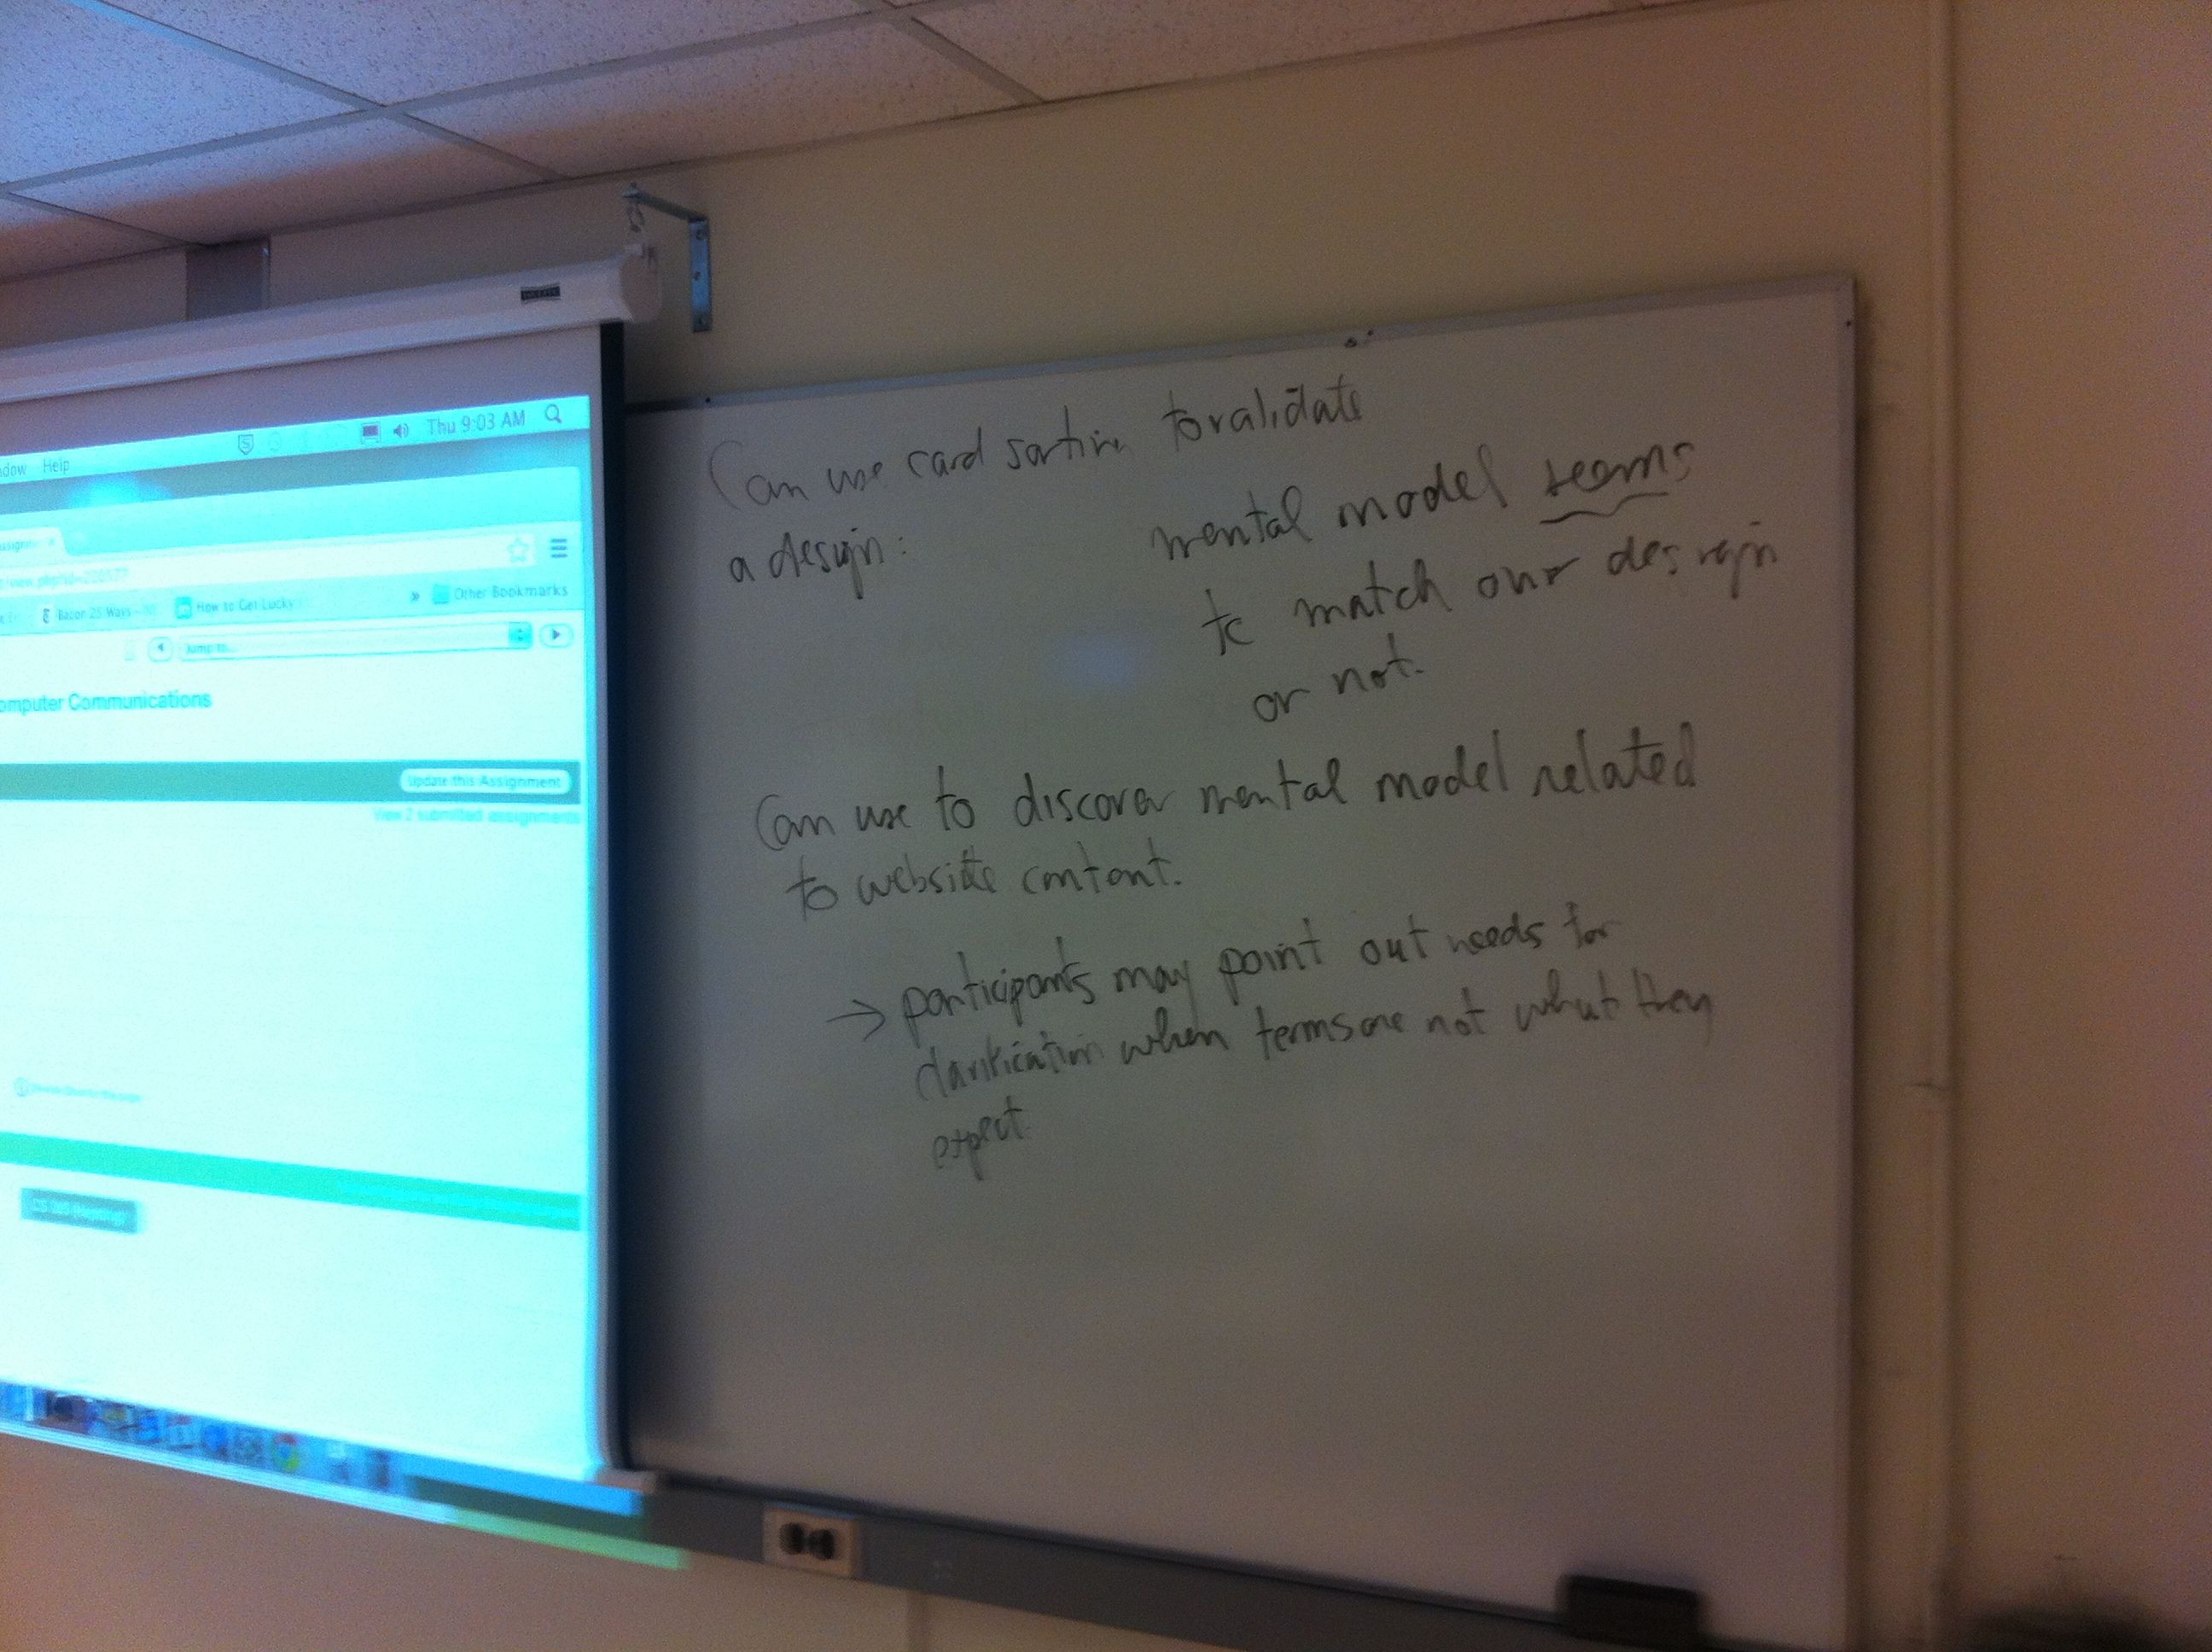 Thu 9:03 AM
Help
Bacon 25 Ways
How to Get Lucky
Other Bookmarks
Jump to...
omputer Communications
Update this Assignment
View 2 submitted assignments
Can use card sorting to validate
a design:
mental model seems
to match our design
or not.
Can use to discover mental model related
to website content.
→ participants may point out needs for
clarification when terms are not what they
expect.